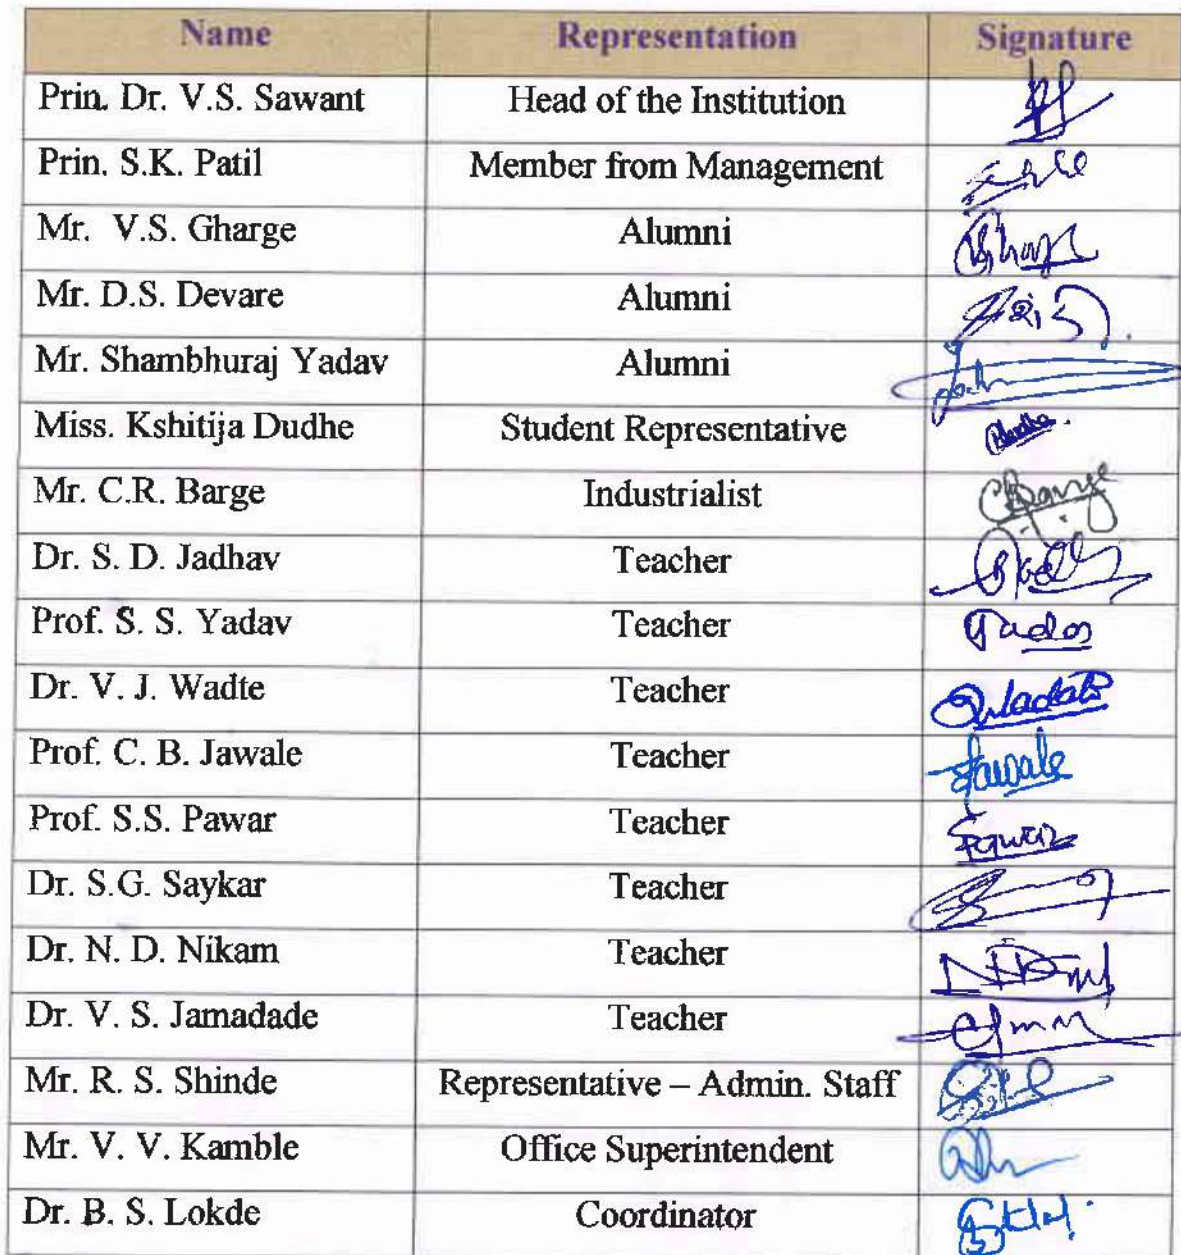 Name Representation Signature
Prin. Dr. V.S. Sawant Head of the Institution
Prin. S.K. Patil Member from Management
Mr. V.S. Gharge Alumni
Mr. D.S. Devare Alumni
Mr. Shambhuraj Yadav Alumni
Miss. Kshitija Dudhe Student Representative
Mr. C.R. Barge Industrialist
Dr. S. D. Jadhav Teacher
Prof. S. S. Yadav Teacher
Dr. V. J. Wadte Teacher
Prof. C. B. Jawale Teacher Jawale
Prof. S.S. Pawar Teacher
Dr. S.G. Saykar Teacher
Dr. N. D. Nikam Teacher
Dr. V. S. Jamadade Teacher
Mr. R. S. Shinde Representative – Admin. Staff
Mr. V. V. Kamble Office Superintendent
Dr. B. S. Lokde Coordinator